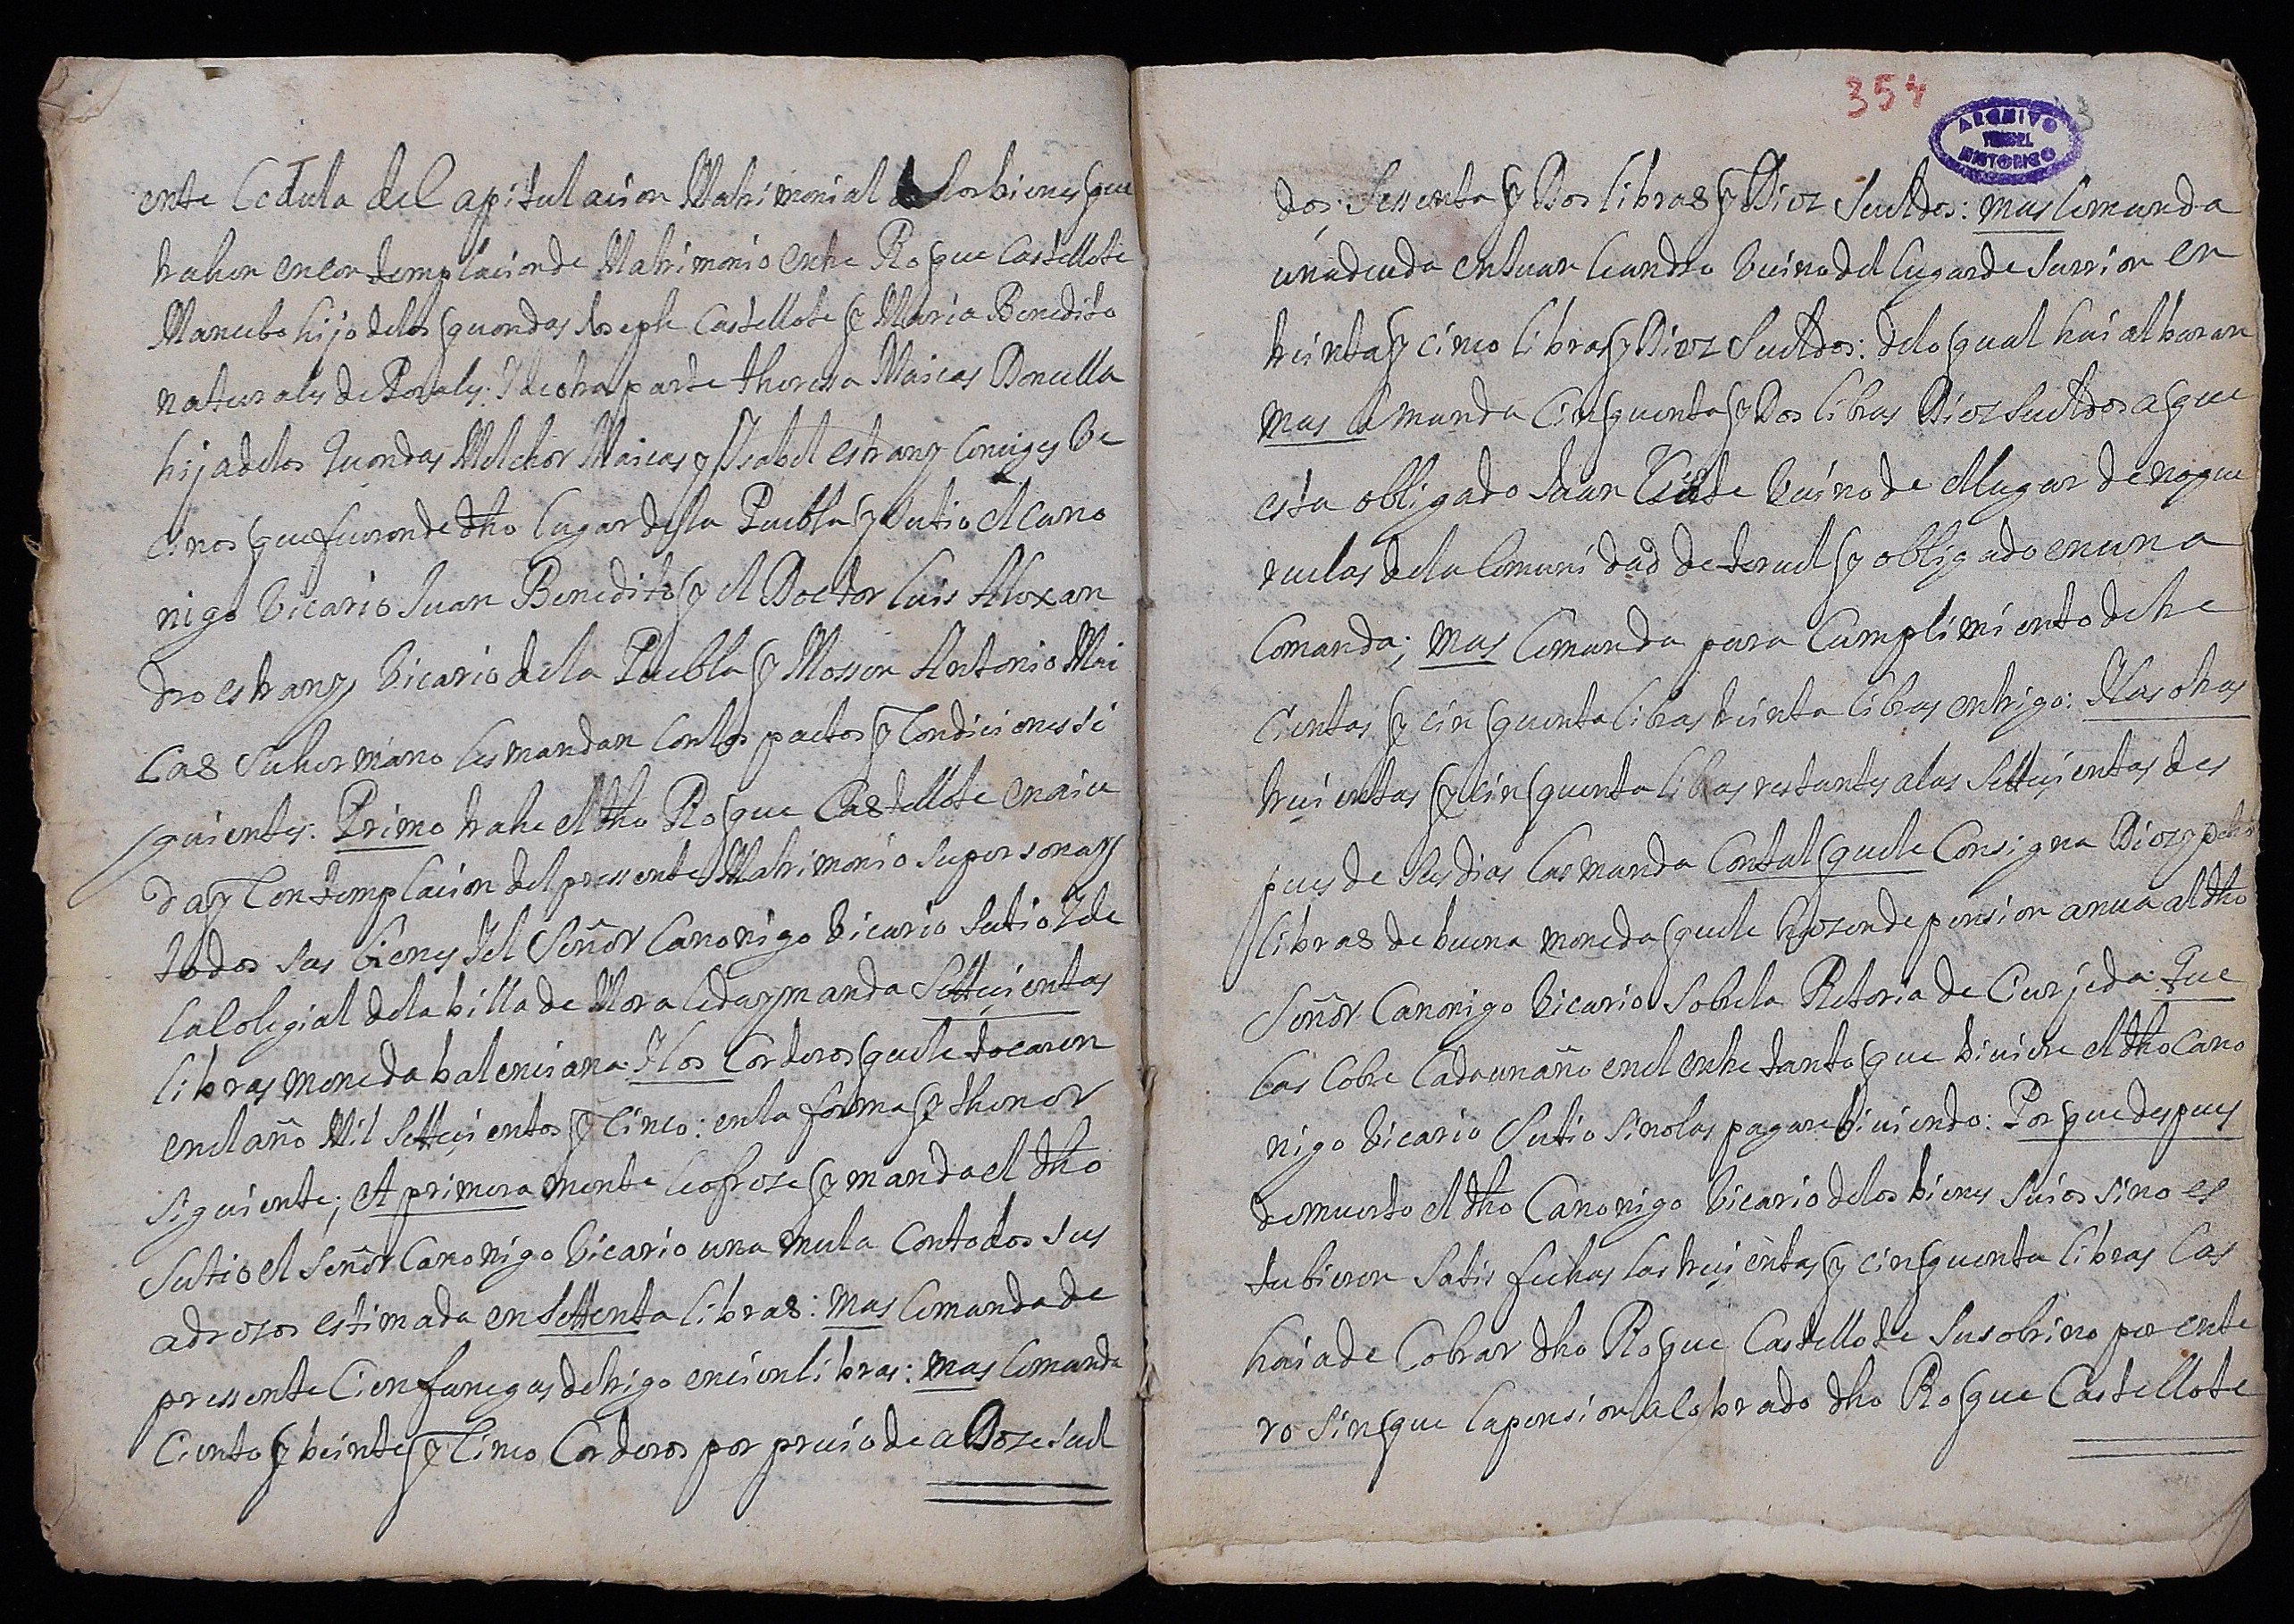 ente Cedula del Capitulacion Matrimonial de los bienes que
trahen en contemplacion de Matrimonio entre Roque Castellote
Mancebo hijo de los quondas Joseph Castellote y Maria Benedito
naturales de Perales: Y de otra parte Theressa Maicas Doncella
hija de los quondas Melchor Maicas y Isabel estrany Coniuges Ve
cinos que fueron de dho lugar de la Puebla y Su tio el Cano
nigo Vicario Juan Benedito y el Doctor Luis Alexan
dro estrany Vicario de la Puebla y Mossen Antonio Mai
Cas Su hermano les mandan con los pactos y Condiciones si
guientes: Primo trahe el dho Roque Castellote en aiu
da y Contemplacion del pressente Matrimonio su persona y
todos sus bienes Y el Señor Canonigo Vicario Su tio Y de
la Colegial de la billa de Mora le da y manda Settecientas
libras moneda balenciana: Y los Corderos que le tocaren
en el año Mil Settecientos y Cinco: en la forma y thenor
siguiente; et primera mente le ofreze y manda el dho
Su tio el Señor Canonigo Vicario una mula Con todos sus
adrezos estimada en settenta libras: mas le manda de
pressente Cien fanegas de trigo en cien libras: mas le manda
Ciento y beinte y Cinco Corderos por precio de a Doze suel
354
3
ARCHIVO
TERUEL
HISTORICO
dos: Sessenta y Dos libras y Diez Sueldos: mas le manda
una deuda en Juan Leandro Vecino del lugar de Sarrion en
treinta y cinco libras y Diez Sueldos: de lo qual hai albaran
mas le manda Cinquenta y Dos libras Diez sueldos a que
esta obligado Juan Vecino de el lugar de nogue
ruelas de la Comunidad de teruel y obligado en una
Comanda; mas le manda para Cumplimiento de tre
cientas y cinquenta libras treinta libras en trigo: Mas otras
trecientas y cinquenta libras restantes a las Settecientas des
pues de Sus dias las manda Con tal que le Consigna Diez y
libras de buena moneda que le hazen de pension anua al dho
Señor Canonigo Vicario sobre la Retoria de Cucrjeda: Que
las Cobre Cada un año en el entre tanto que biuiere el dho Cano
nigo Vicario Su tio si no las pagare biuiendo: Por que despues
de muerto el dho Canonigo Vicario de los bienes Suios si no es
tubieren Satis fechas las trecientas y cinquenta libras las
haia de Cobrar dho Roque Castellote Su sobrino por ente
ro sin que la pension a cobrado dho Roque Castellote